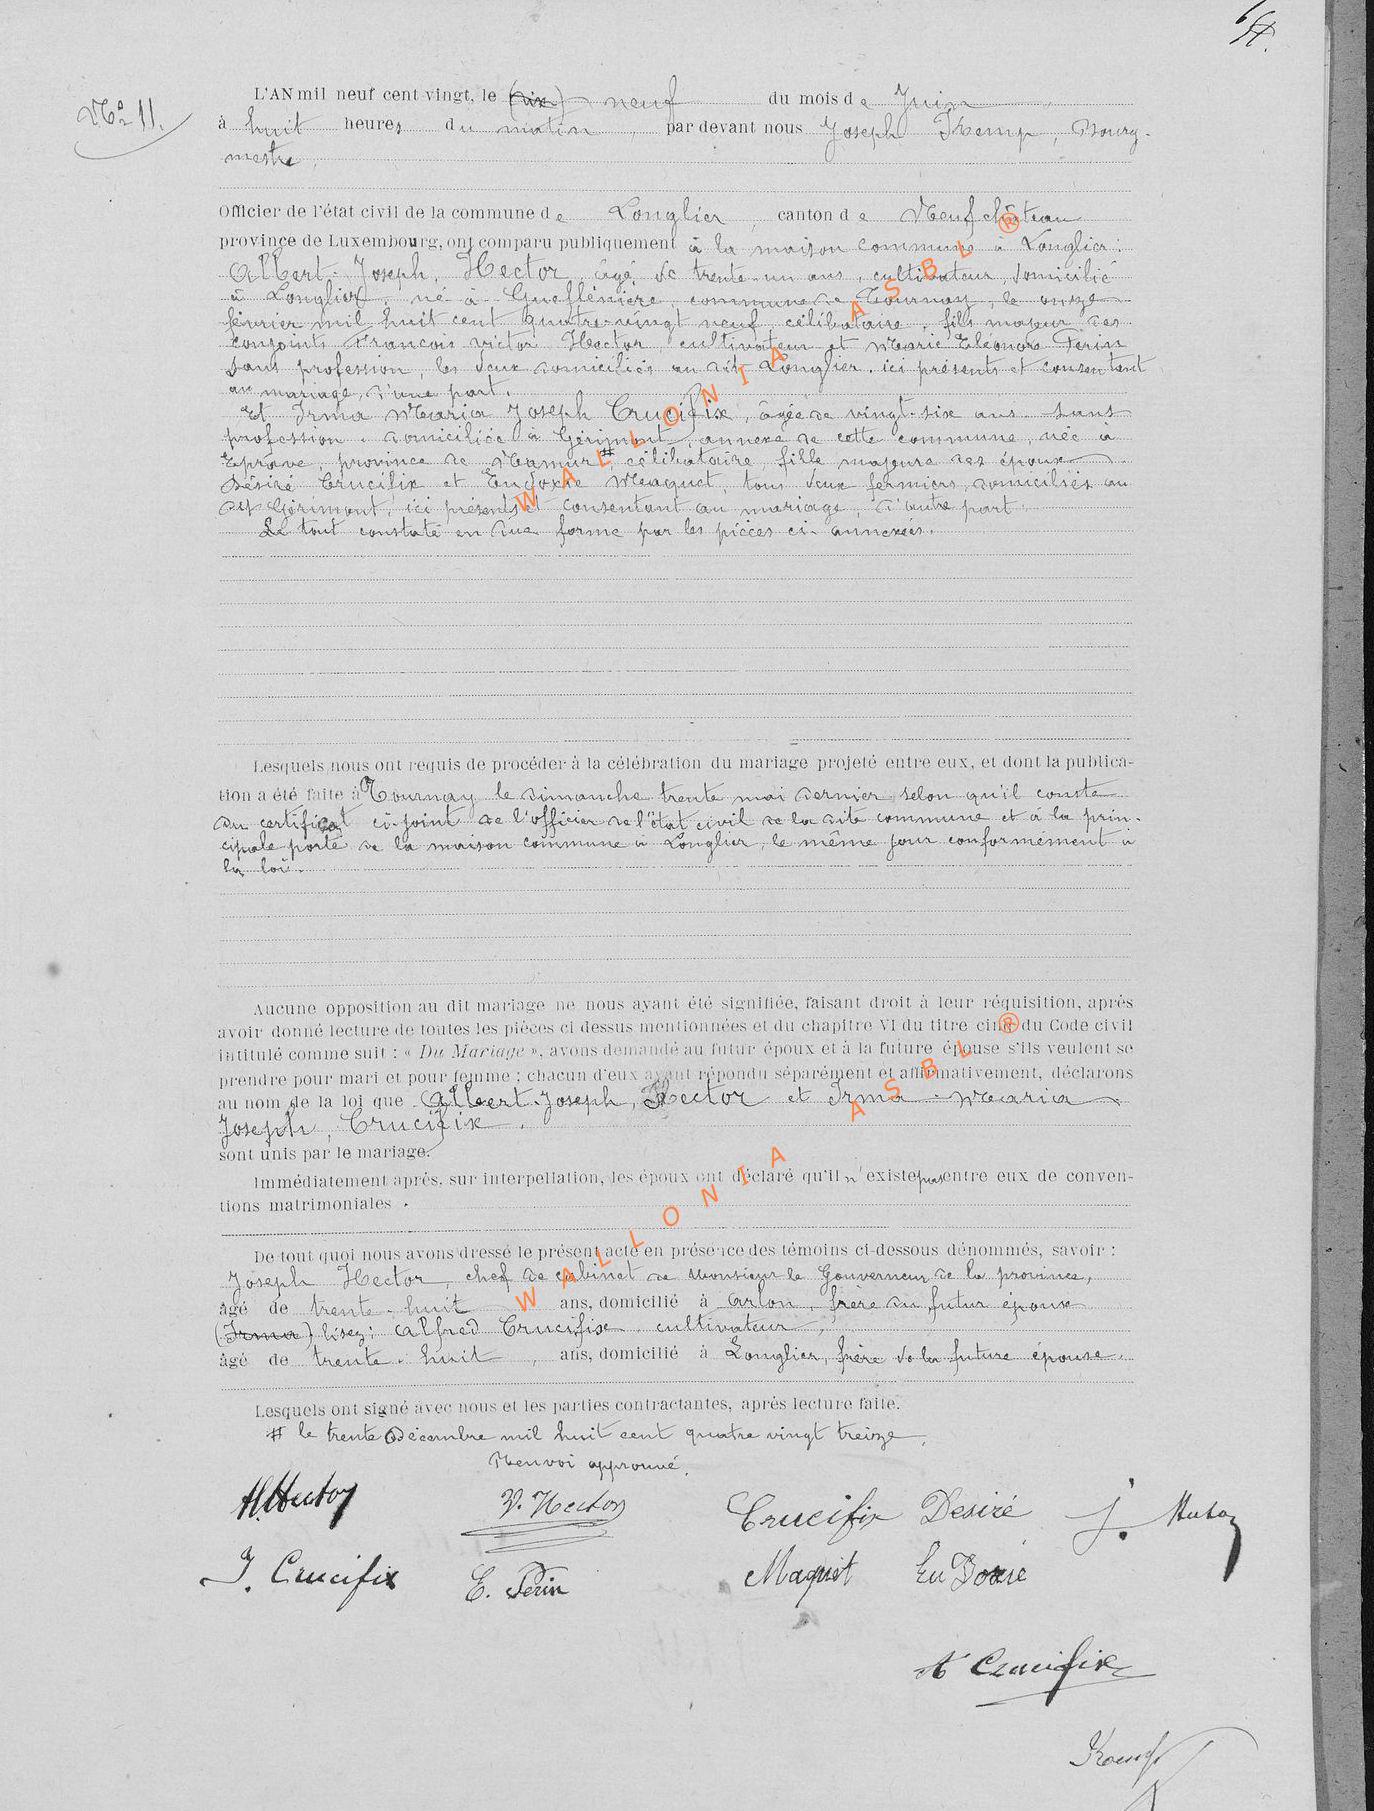 N° 11.
L'AN mil neuf cent vingt, le (dix) neuf du mois de Juin
à huit heures du matin, par devant nous Joseph Kemp, Bourg-
mestre,
Officier de l'état civil de la commune de Longlier, canton de Neufchâteau
province de Luxembourg, ont comparu publiquement à la maison commune à Longlier :
Albert-Joseph, Hector, âgé de trente-un ans, cultivateur, domicilié
à Longlier, né à commune de Tournay, le onze
février mil huit cent quatre-vingt neuf, célibataire, fils majeur des
conjoints François Victor Hector, cultivateur et Marie Eléonore Perin
sans profession, les deux domiciliés au dit Longlier, ici présents et consentant
au mariage, d'une part.
Et Irma Maria Joseph Crucifix, âgée de vingt-six ans, sans
profession, domiciliée à Gérimont, annexe de cette commune, née à
Eprave, province de Namur, # célibataire, fille majeure des époux
Désiré Crucifix et Eudoxie Maquet, tous deux fermiers, domiciliés au
dit Gérimont, ici présents et consentant au mariage, d'autre part.
Le tout constaté en due forme par les pièces ci-annexées.
Lesquels nous ont requis de procéder à la célébration du mariage projeté entre eux, et dont la publica-
tion a été faite à Tournay le dimanche trente mai dernier, selon qu'il conste
du certificat ci-joint de l'officier de l'état civil de la dite commune et à la prin-
cipale porte de la maison commune à Longlier, le même jour conformément à
la loi.
Aucune opposition au dit mariage ne nous ayant été signifiée, faisant droit à leur réquisition, après
avoir donné lecture de toutes les pièces ci dessus mentionnées et du chapitre VI du titre cinq du Code civil
intitulé comme suit : « Du Mariage », avons demandé au futur époux et à la future épouse s'ils veulent se
prendre pour mari et pour femme ; chacun d'eux ayant répondu séparément et affirmativement, déclarons
au nom de la loi que Albert-Joseph, Hector et Irma-Maria
Joseph, Crucifix.
sont unis par le mariage.
Immédiatement après, sur interpellation, les époux ont déclaré qu'il n'existe pas entre eux de conven-
tions matrimoniales.
De tout quoi nous avons dressé le présent acte en présence des témoins ci-dessous dénommés, savoir :
Joseph Hector, chef de cabinet de Monsieur le Gouverneur de la province,
âgé de trente-huit ans, domicilié à Arlon, frère du futur époux
(Irma) lisez : Alfred Crucifix, cultivateur,
âgé de trente-huit, ans, domicilié à Longlier, frère de la future épouse.
Lesquels ont signé avec nous et les parties contractantes, après lecture faite.
# le trente décembre mil huit cent quatre vingt treize.
Renvoi approuvé.
A. Hector V. Hector Crucifix Desiré J. Hector
I. Crucifix E. Perin Maquet Eudoxie
A Crucifix
Kemp
WALLONIA ASBL ®
WALLONIA ASBL ®